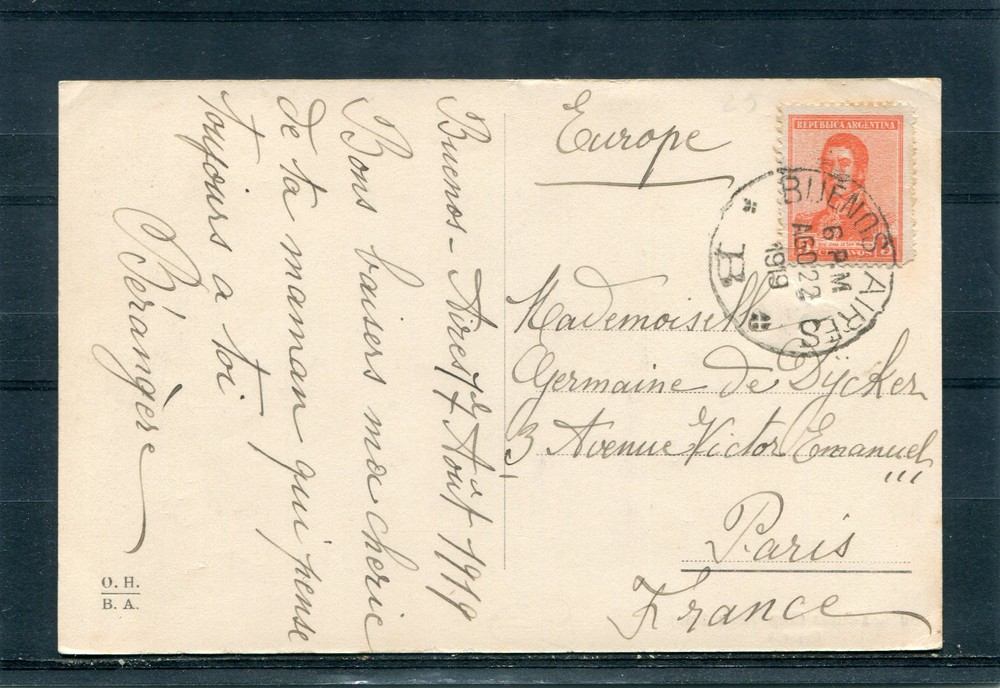 Buenos-Aires Août 1919
Bons baisers ma cherie
de ta maman qui pense
toujours a toi
Bérangère
O. H.
B. A.
Europe
REPUBLICA ARGENTINA
5 CENTAVOS 5
BUENOS AIRES
6 PM
AGO 22
1919
B
Mademoiselle
Germaine de Dÿcker
3 Avenue Victor Emanuel
III
Paris
France